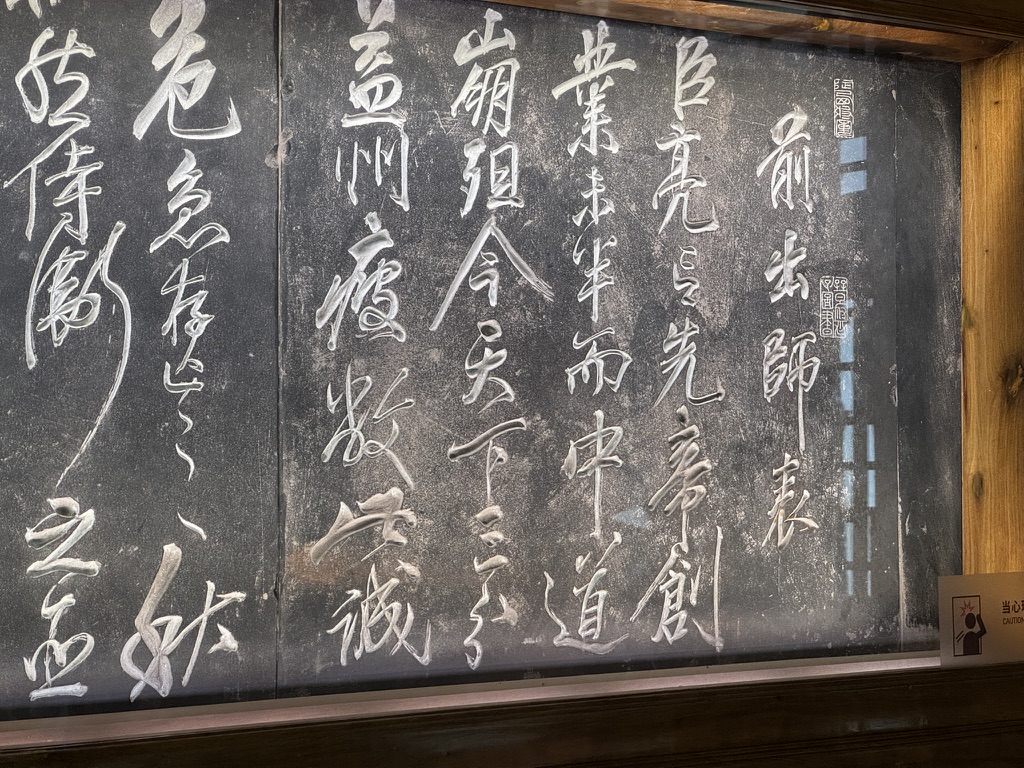 前出師表
臣亮言先帝創
業未半而中道
崩殂今天下三分
益州疲敝此誠
危急存亡之秋
然侍衛之臣
当心
CAUTION